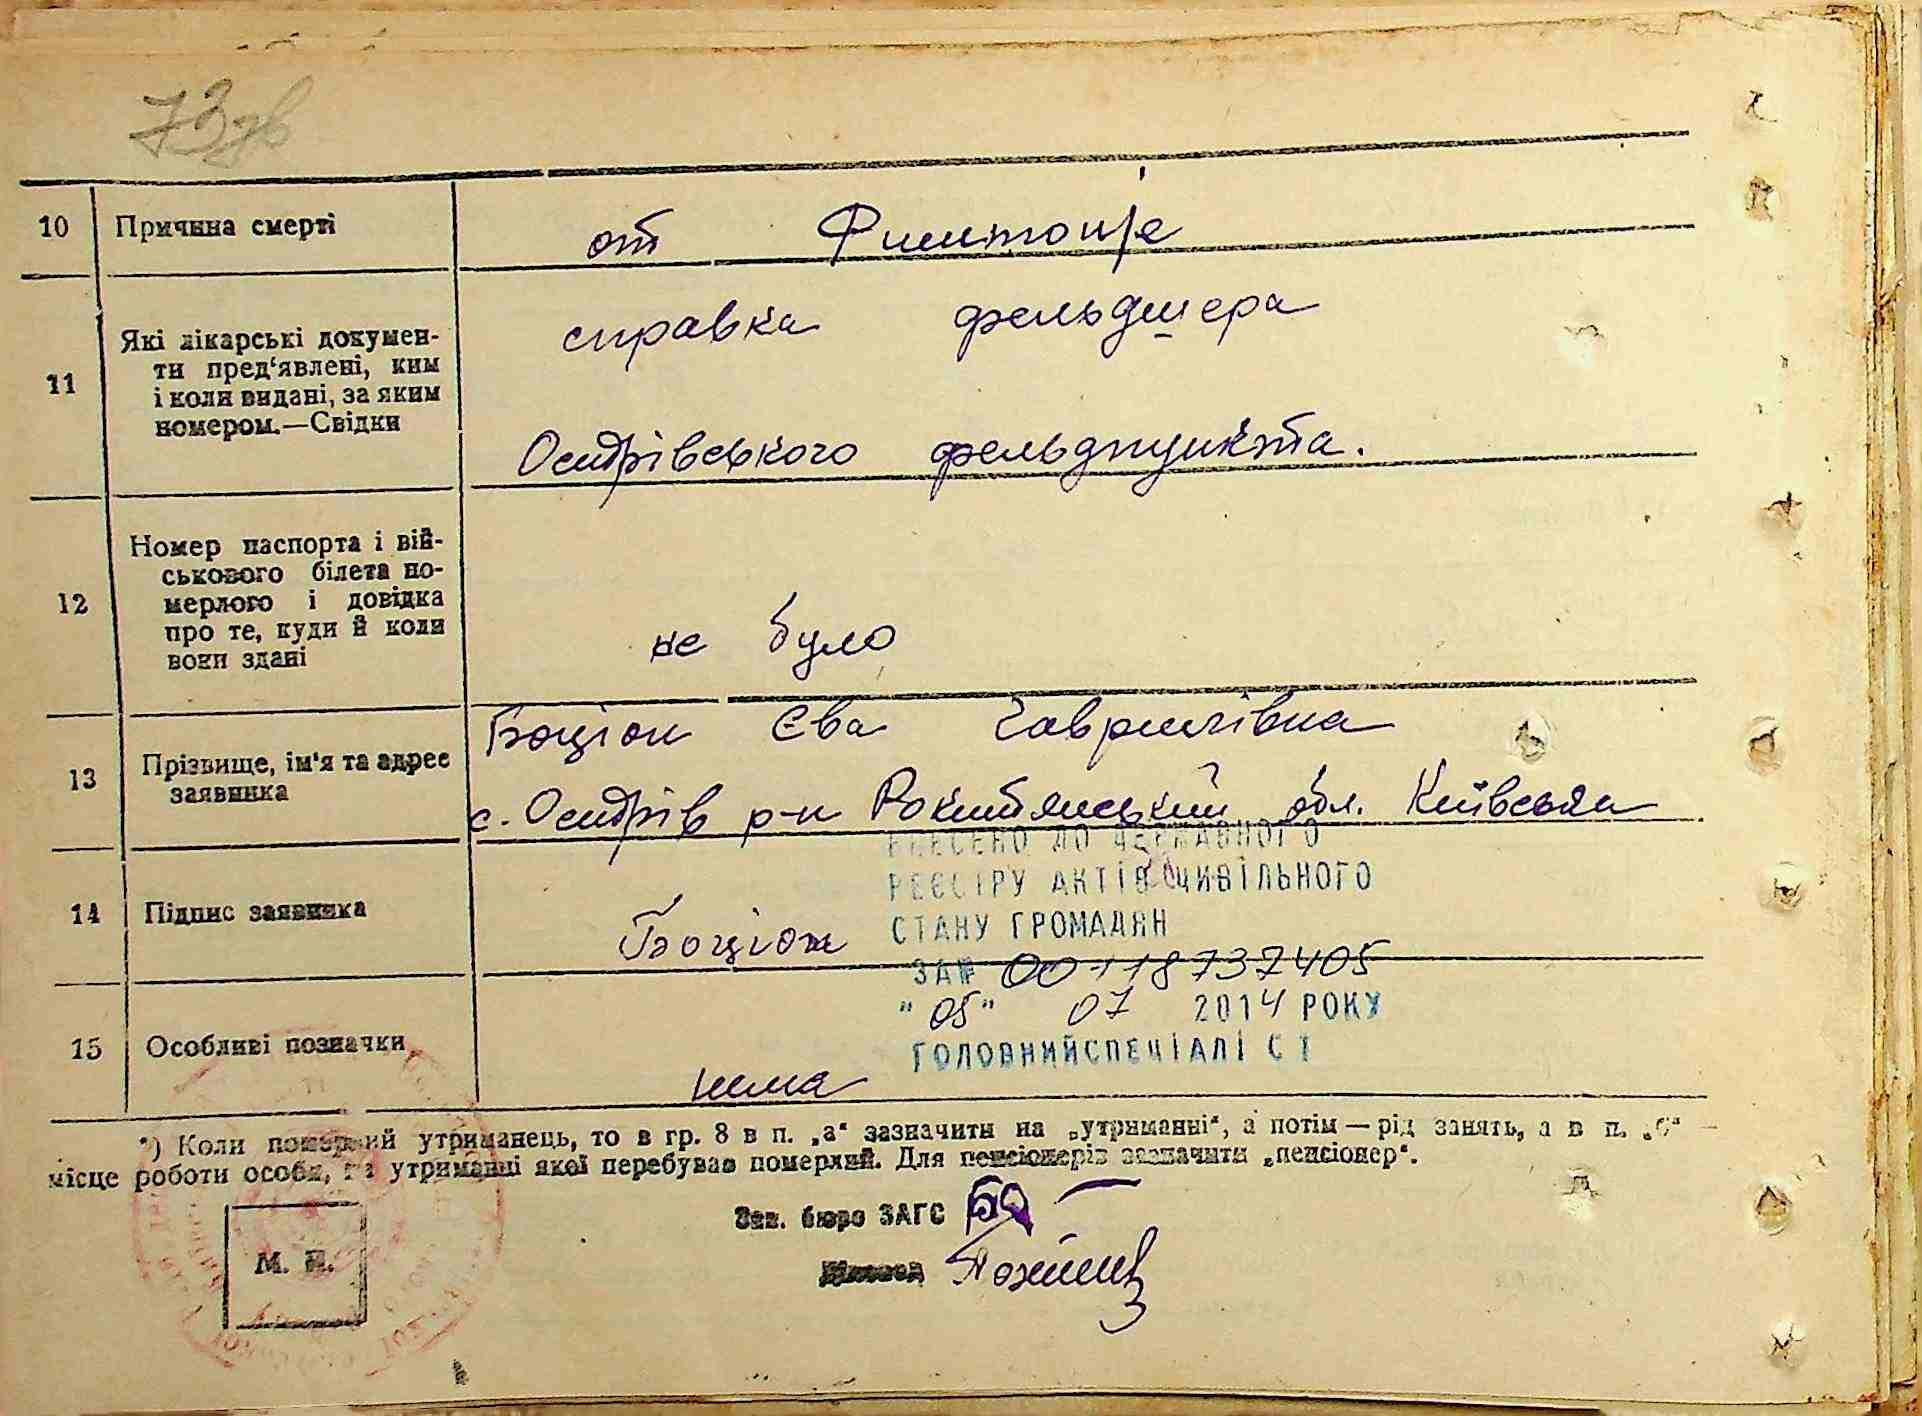 73зв
10 Причина смерті от
11 Які лікарські докумен-
ти пред‘явлені, ким
і коли видані, за яким
номером.—Свідки
справка фельдшера
Острівського фельдпункта.
12 Номер паспорта і вій-
ськового білета по-
мерлого і довідка
про те, куди й коли
вони здані
не було
13 Прізвище, ім‘я та адрес
заявника
Боціон Єва Гаврилівна
с. Острів р-н Рокитянський обл. Київська
ВНЕСЕНО ДО ДЕРЖАВНОГО
РЕЄСТРУ АКТІВ ЦИВІЛЬНОГО
СТАНУ ГРОМАДЯН
14 Підпис заявника Боціон
ЗА№ 00118737405
"05" 07 2014 РОКУ
ГОЛОВНИЙСПЕЦІАЛІСТ
15 Особливі позначки нема
*) Коли померлий утриманець, то в гр. 8 в п. „а“ зазначити на „утриманні“, а потім — рід занять, а в п. „б“ —
місце роботи особи, на утриманні якої перебував померлий. Для пенсіонерів зазначити „пенсіонер“.
Зав. бюро ЗАГС
Діловод
М. П.